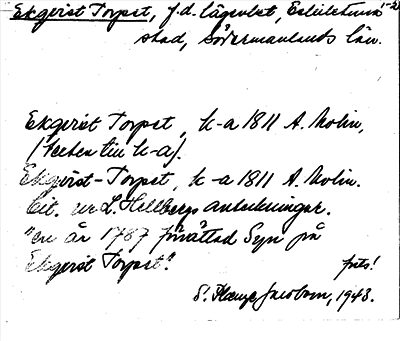 Ekqvist Torpet, f.d. lägenhet, Eskilstuna 1-2
stad, Södermanlands län.
Ekqvist Torpet, k-a 1811 A. Molin,
(Tecken till k-a).
Ekqvist-Torpet, k-a 1811 A. Molin.
Cit. ur L. Hellbergs anteckningar.
"en år 1787 förrättad Syn på
Ekqvist Torpet". forts!
S. Jacobson, 1943.